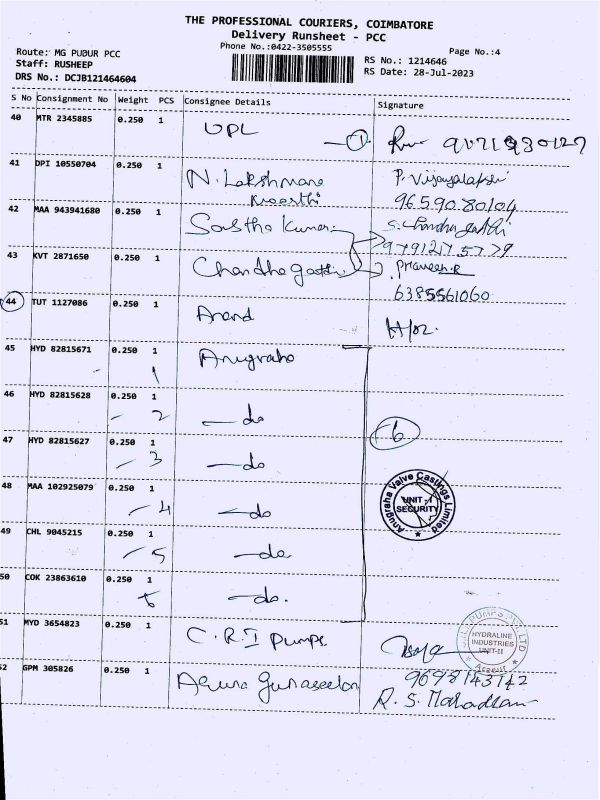 THE PROFESSIONAL COURIERS, COIMBATORE
Delivery Runsheet - PCC
Phone No.:0422-3505555
Page No.:4
Route: MG PUDUR PCC
Staff: RUSHEEP
DRS No.: DCJB121464604
RS No.: 1214646
RS Date: 28-Jul-2023
S No Consignment No Weight PCS Consignee Details Signature
40 MTR 2345885 0.250 1 UPL 1
41 DPI 10550704 0.250 1 N. Lakshmana P. Vijayalapsri
9659080104
42 MAA 943941680 0.250 1 Sastha Kumar S. Chandragatthi
9791215779
43 KVT 2871650 0.250 1 Chandhagatti Praveen.R
6385561060
44 TUT 1127086 0.250 1 Anand
45 HYD 82815671 0.250 1 Anugraha
1
46 HYD 82815628 0.250 1 - do
2
47 HYD 82815627 0.250 1 - do 6
3
48 MAA 102925079 0.250 1 - do
4
Anugraha Valve Castings Limited
UNIT - I
SECURITY
49 CHL 9045215 0.250 1 - do
5
50 COK 23863610 0.250 1 - do.
6
51 MYD 3654823 0.250 1 C.R.I Pumps
HYDRALINE
INDUSTRIES
UNIT-II
52 GPM 305826 0.250 1 Aruna Gunaseelan 9698143142
R. S. Mahadhan